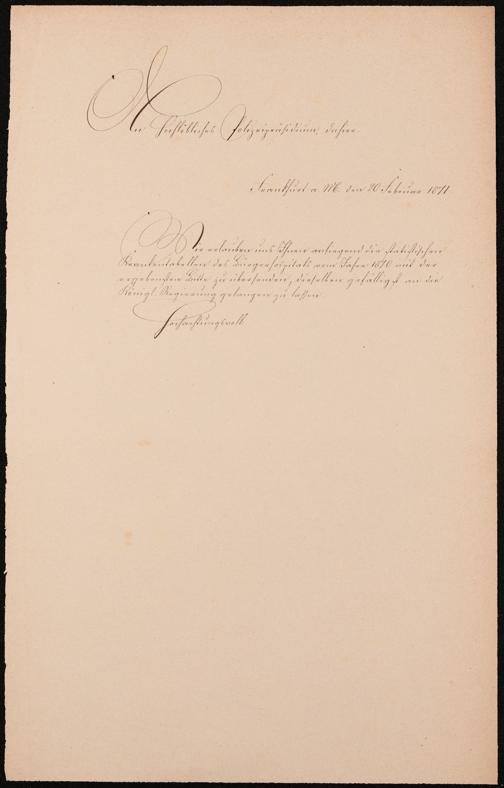 An Hochlöbliches Polizeipräsidium, dahier.
Frankfurt a. M. den 20 Februar 1871
Wir erlauben uns Ihnen anliegend die statistischen
Krankentabellen des Bürgerhospitals vom Jahre 1870 mit der
ergebensten Bitte zu übersenden, dieselben gefälligst an die
Königl. Regierung gelangen zu lassen.
Hochachtungsvoll